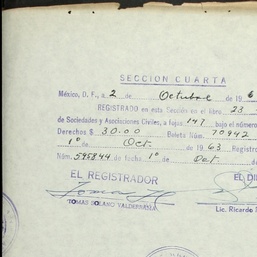 SECCION CUARTA
México, D. F., a 2 de Octubre de 196
REGISTRADO en esta Sección en el libro 23
de Sociedades y Asociaciones Civiles, a fojas 147 bajo el número
Derechos $ 30.00 Boleta Núm. 70942
1º de Oct. de 1963 Registro
Núm. 595844 de fecha 1º Oct. de
EL REGISTRADOR
EL DI
TOMAS SOLANO VALDERRAMA
Lic. Ricardo